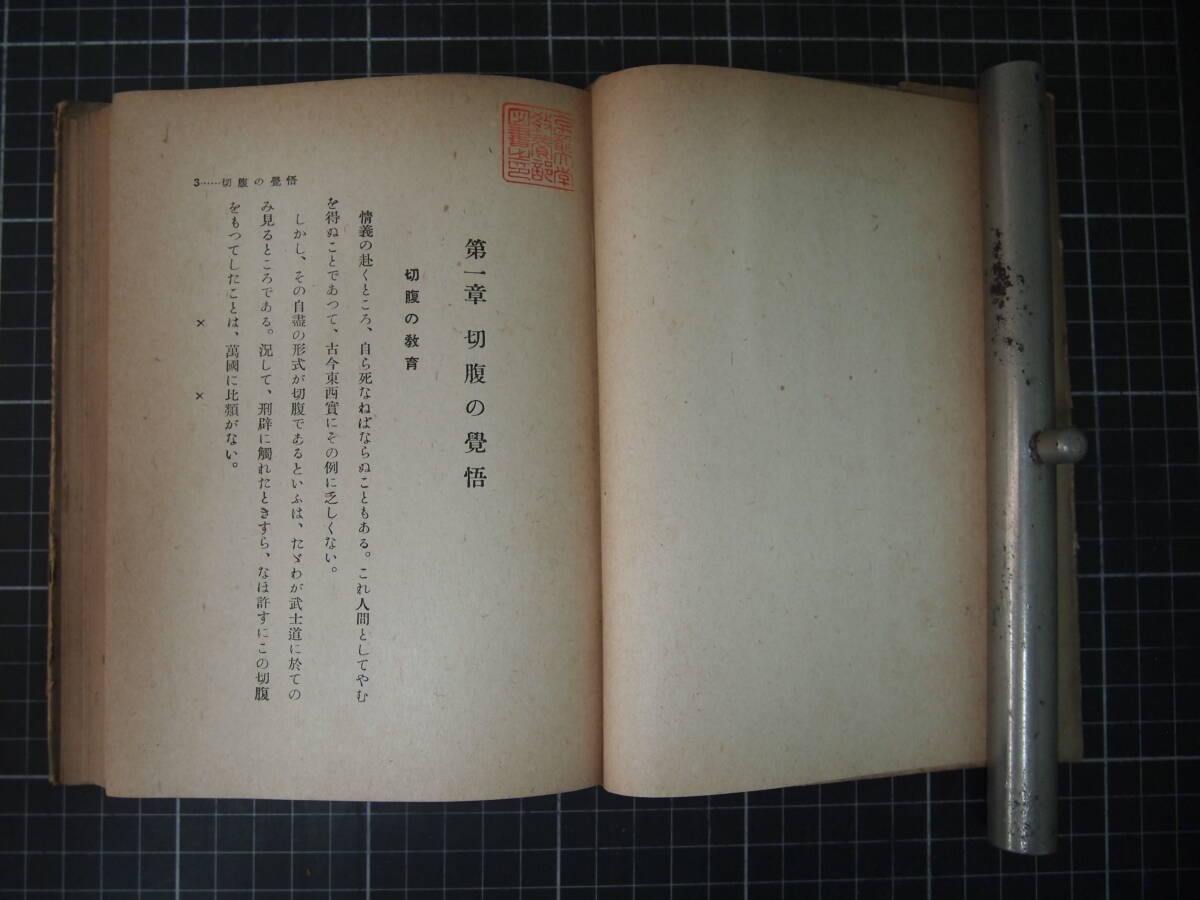 第一章 切腹の覺悟
切腹の敎育
情義の赴くところ、自ら死なねばならぬこともある。これ人間としてやむ
を得ぬことであつて、古今東西實にその例に乏しくない。
しかし、その自盡の形式が切腹であるといふは、たゞわが武士道に於ての
み見るところである。況して、刑辟に觸れたときすら、なほ許すにこの切腹
をもつてしたことは、萬國に比類がない。
× ×
3……切腹の覺悟